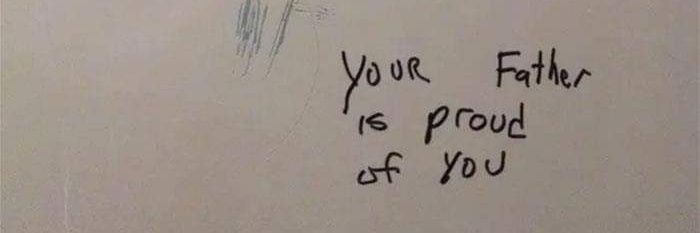 YOUR Father
is proud
of YOU